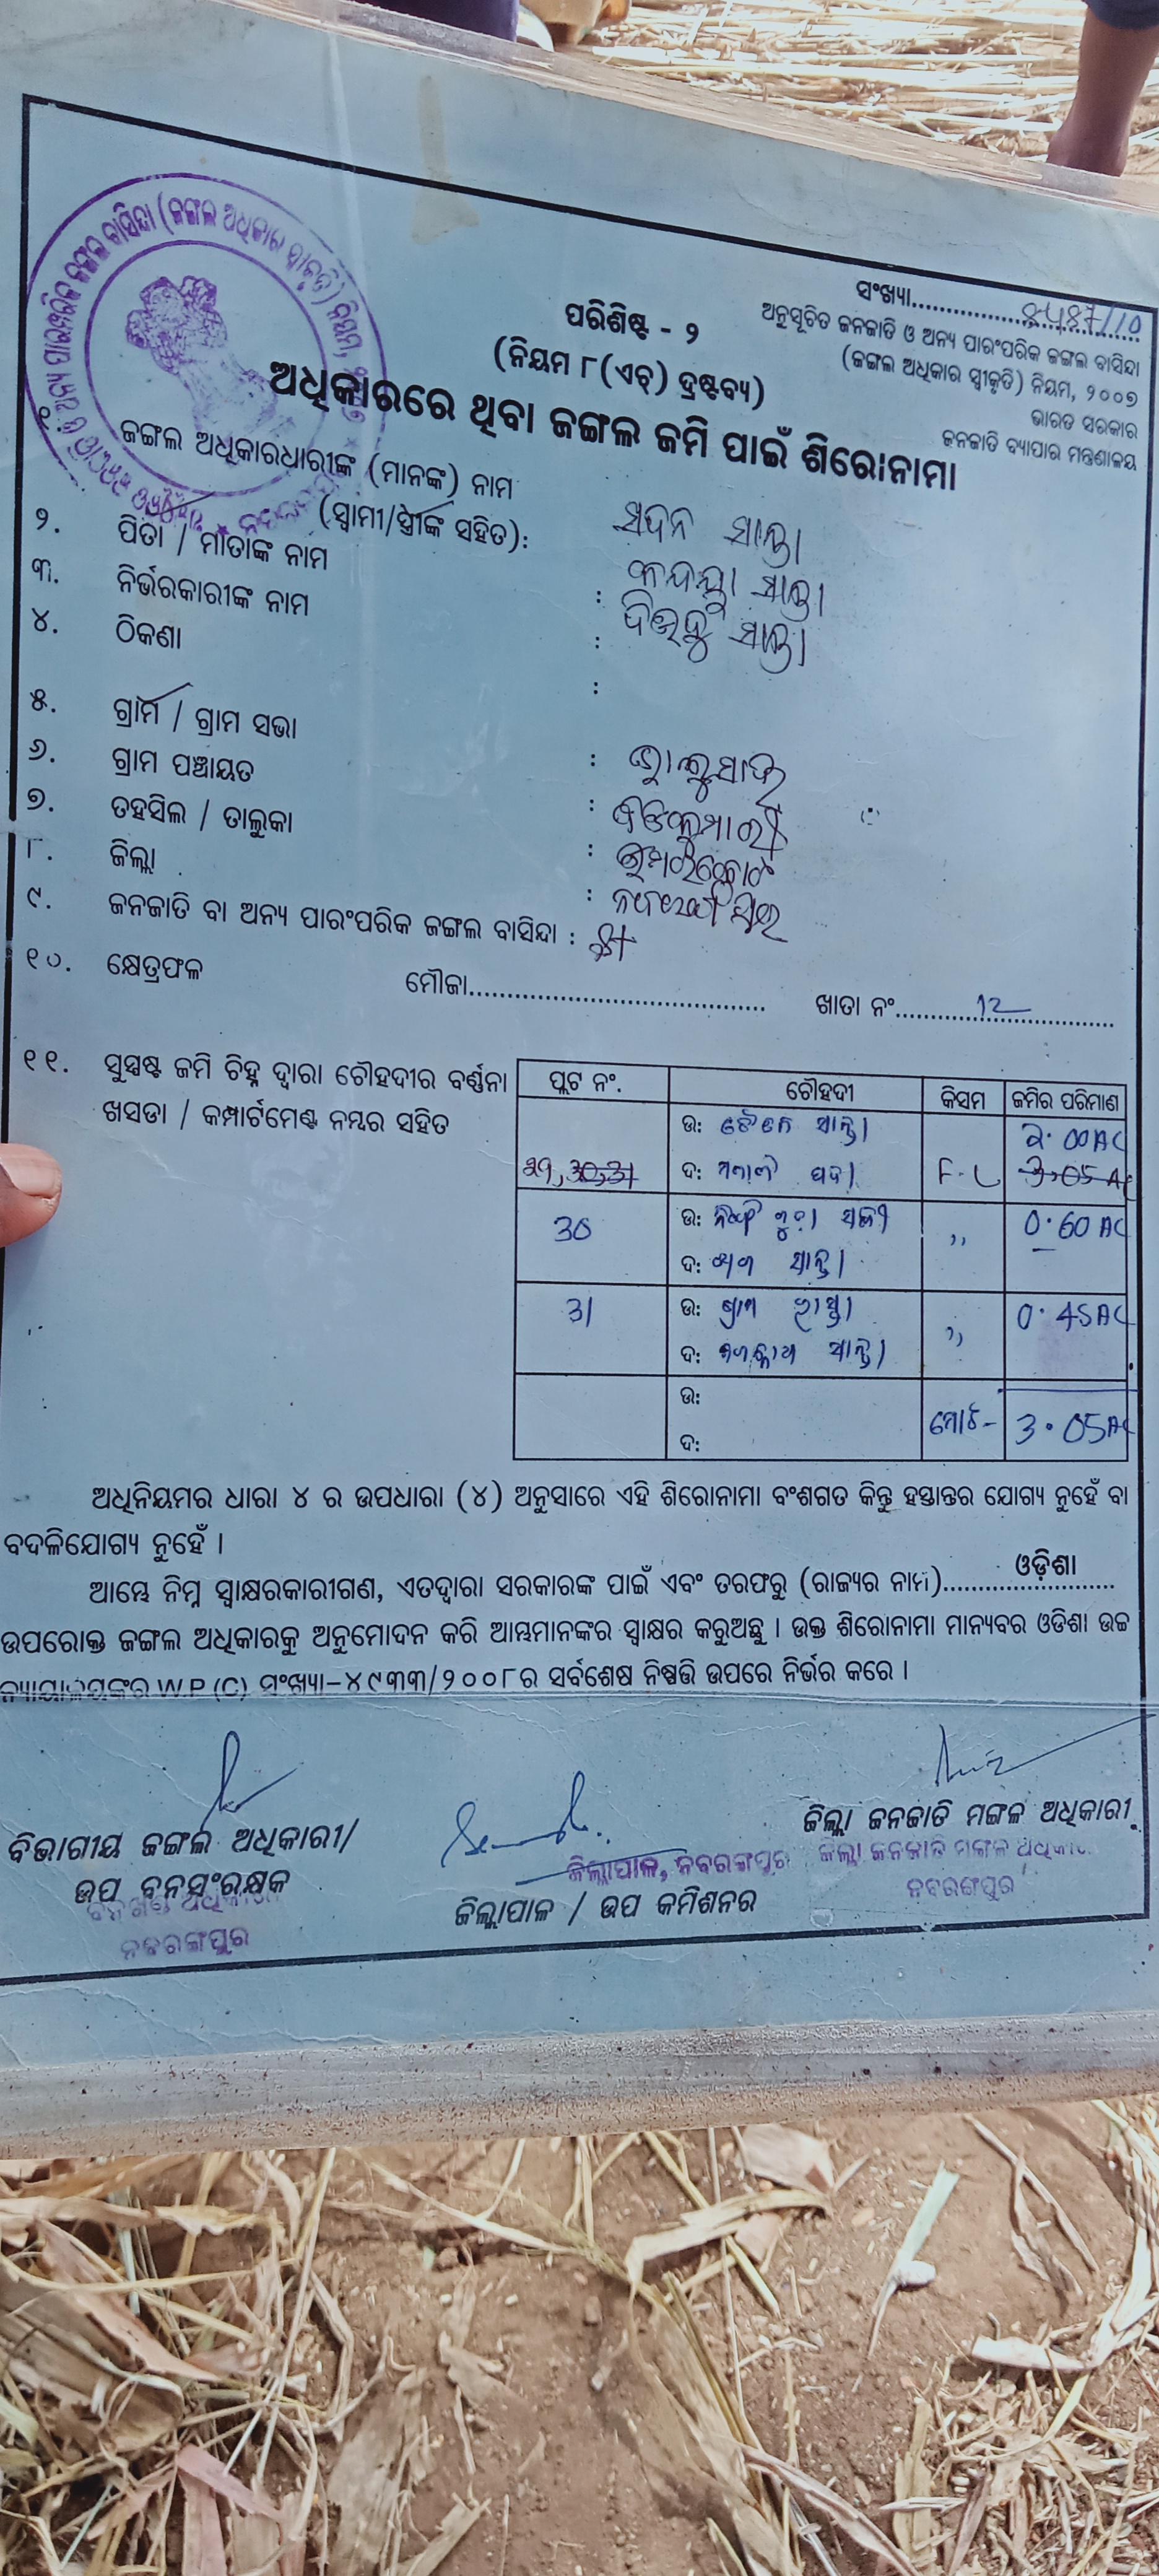 ସଂଖ୍ୟା
ଅନୁସୂଚିତ ଜନଜାତି ଓ ଅନ୍ୟ ପାରଂପରିକ ଜଙ୍ଗଲ ବାସିନ୍ଦା
(ଜଙ୍ଗଲ ଅଧିକାର ସ୍ୱୀକୃତି) ନିୟମ, ୨୦୦୭
ଭାରତ ସରକାର
ଜନଜାତି ବ୍ୟାପାର ମନ୍ତ୍ରଣାଳୟ
ପରିଶିଷ୍ଟ - ୨
(ନିୟମ ୮(ଏଚ୍) ଦ୍ରଷ୍ଟବ୍ୟ)
ଅଧିକାରରେ ଥିବା ଜଙ୍ଗଲ ଜମି ପାଇଁ ଶିରୋନାମା
୧. ଜଙ୍ଗଲ ଅଧିକାରଧାରୀଙ୍କ (ମାନଙ୍କ) ନାମ
(ସ୍ୱାମୀ/ସ୍ତ୍ରୀଙ୍କ ସହିତ): ସଦନ ସାନ୍ତା
୨. ପିତା / ମାତାଙ୍କ ନାମ : ସାନ୍ତା
୩. ନିର୍ଭରକାରୀଙ୍କ ନାମ : ସାନ୍ତା
୪. ଠିକଣା :
୫. ଗ୍ରାମ / ଗ୍ରାମ ସଭା :
୬. ଗ୍ରାମ ପଞ୍ଚାୟତ :
୭. ତହସିଲ / ତାଲୁକା : ଉମରକୋଟ
୮. ଜିଲ୍ଲା : ନବରଙ୍ଗପୁର
୯. ଜନଜାତି ବା ଅନ୍ୟ ପାରଂପରିକ ଜଙ୍ଗଲ ବାସିନ୍ଦା :
୧୦. କ୍ଷେତ୍ରଫଳ ମୌଜା ଖାତା ନଂ 12
୧୧. ସୁସ୍ପଷ୍ଟ ଜମି ଚିହ୍ନ ଦ୍ୱାରା ଚୌହଦୀର ବର୍ଣ୍ଣନା
ଖସଡା / କମ୍ପାର୍ଟମେଣ୍ଟ ନମ୍ବର ସହିତ
ପ୍ଲଟ ନଂ. ଚୌହଦୀ କିସମ ଜମିର ପରିମାଣ
ଉ: ସାନ୍ତା 2.00AC
ଦ: F.L 3.05 AC
30 ଉ: ,, 0.60 AC
ଦ: ସାନ୍ତା
31 ଉ: ଗ୍ରାମ ରାସ୍ତା ,, 0.45AC
ଦ: ସାନ୍ତା
ଉ: ମୋଟ- 3.05AC
ଦ:
ଅଧିନିୟମର ଧାରା ୪ ର ଉପଧାରା (୪) ଅନୁସାରେ ଏହି ଶିରୋନାମା ବଂଶଗତ କିନ୍ତୁ ହସ୍ତାନ୍ତର ଯୋଗ୍ୟ ନୁହେଁ ବା
ବଦଳିଯୋଗ୍ୟ ନୁହେଁ ।
ଆମ୍ଭେ ନିମ୍ନ ସ୍ୱାକ୍ଷରକାରୀଗଣ, ଏତଦ୍ୱାରା ସରକାରଙ୍କ ପାଇଁ ଏବଂ ତରଫରୁ (ରାଜ୍ୟର ନାମ) ଓଡ଼ିଶା
ଉପରୋକ୍ତ ଜଙ୍ଗଲ ଅଧିକାରକୁ ଅନୁମୋଦନ କରି ଆମ୍ଭମାନଙ୍କର ସ୍ୱାକ୍ଷର କରୁଅଛୁ । ଉକ୍ତ ଶିରୋନାମା ମାନ୍ୟବର ଓଡିଶା ଉଚ୍ଚ
ନ୍ୟାୟାଳୟଙ୍କର W.P.(C) ସଂଖ୍ୟା-୪୯୩୩/୨୦୦୮ର ସର୍ବଶେଷ ନିଷ୍ପତ୍ତି ଉପରେ ନିର୍ଭର କରେ ।
ବିଭାଗୀୟ ଜଙ୍ଗଲ ଅଧିକାରୀ/
ଉପ ବନସଂରକ୍ଷକ
ନବରଙ୍ଗପୁର
ଜିଲ୍ଲାପାଳ, ନବରଙ୍ଗପୁର
ଜିଲ୍ଲାପାଳ / ଉପ କମିଶନର
ଜିଲ୍ଲା ଜନଜାତି ମଙ୍ଗଳ ଅଧିକାରୀ
ଜିଲ୍ଲା ଜନଜାତି ମଙ୍ଗଳ ଅଧିକାରୀ
ନବରଙ୍ଗପୁର